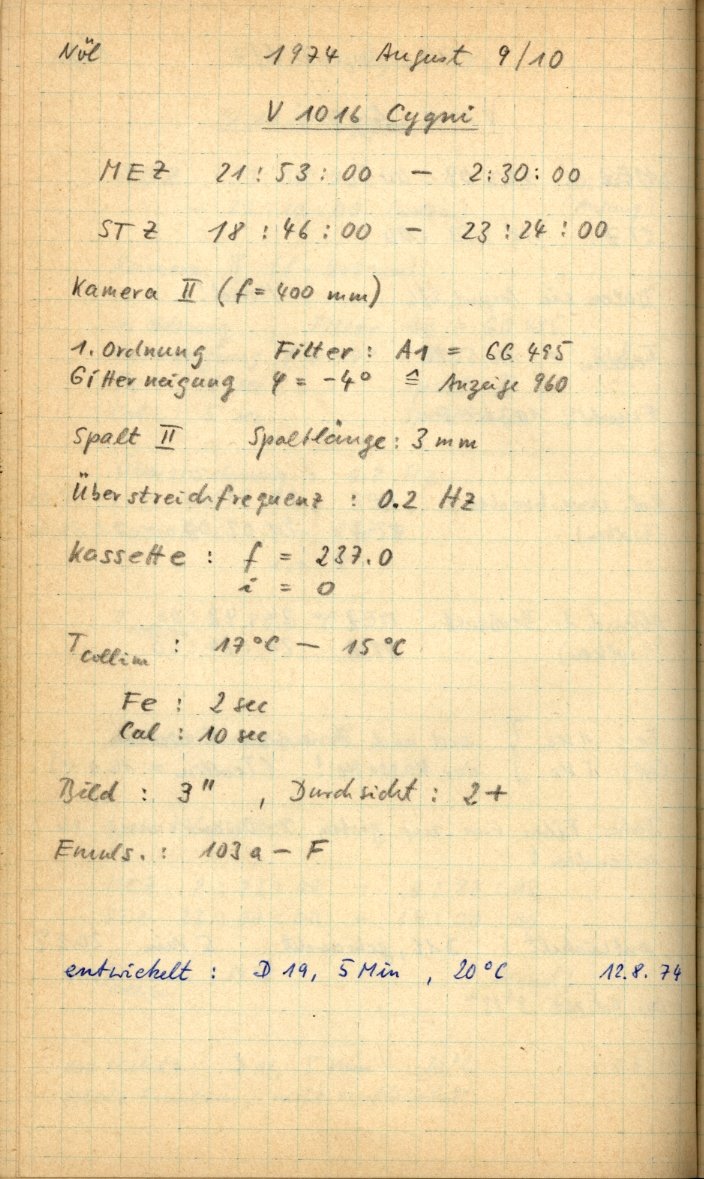 Nöl 1974 August 9/10
V 1016 Cygni
MEZ 21:53:00 — 2:30:00
STZ 18:46:00 — 23:24:00
Kamera II (f = 400 mm)
1. Ordnung Filter: A1 = GG 495
Gitterneigung φ = -4° ≙ Anzeige 960
Spalt II Spaltlänge: 3 mm
Überstreichfrequenz : 0.2 Hz
Kassette : f = 237.0
i = 0
Tcollim : 17°C — 15°C
Fe : 2 sec
Cal : 10 sec
Bild : 3" , Durchsicht : 2+
Emuls. : 103a - F
entwickelt : D 19, 5 Min , 20°C 12.8.74